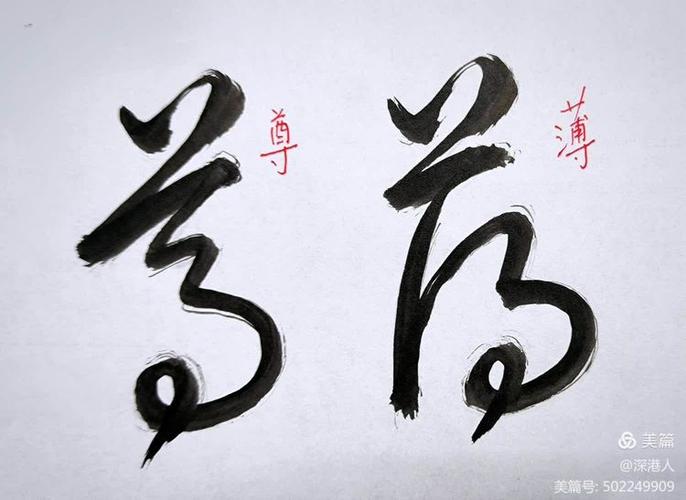 尊 薄
尊 薄
美篇
@深港人
美篇号: 502249909